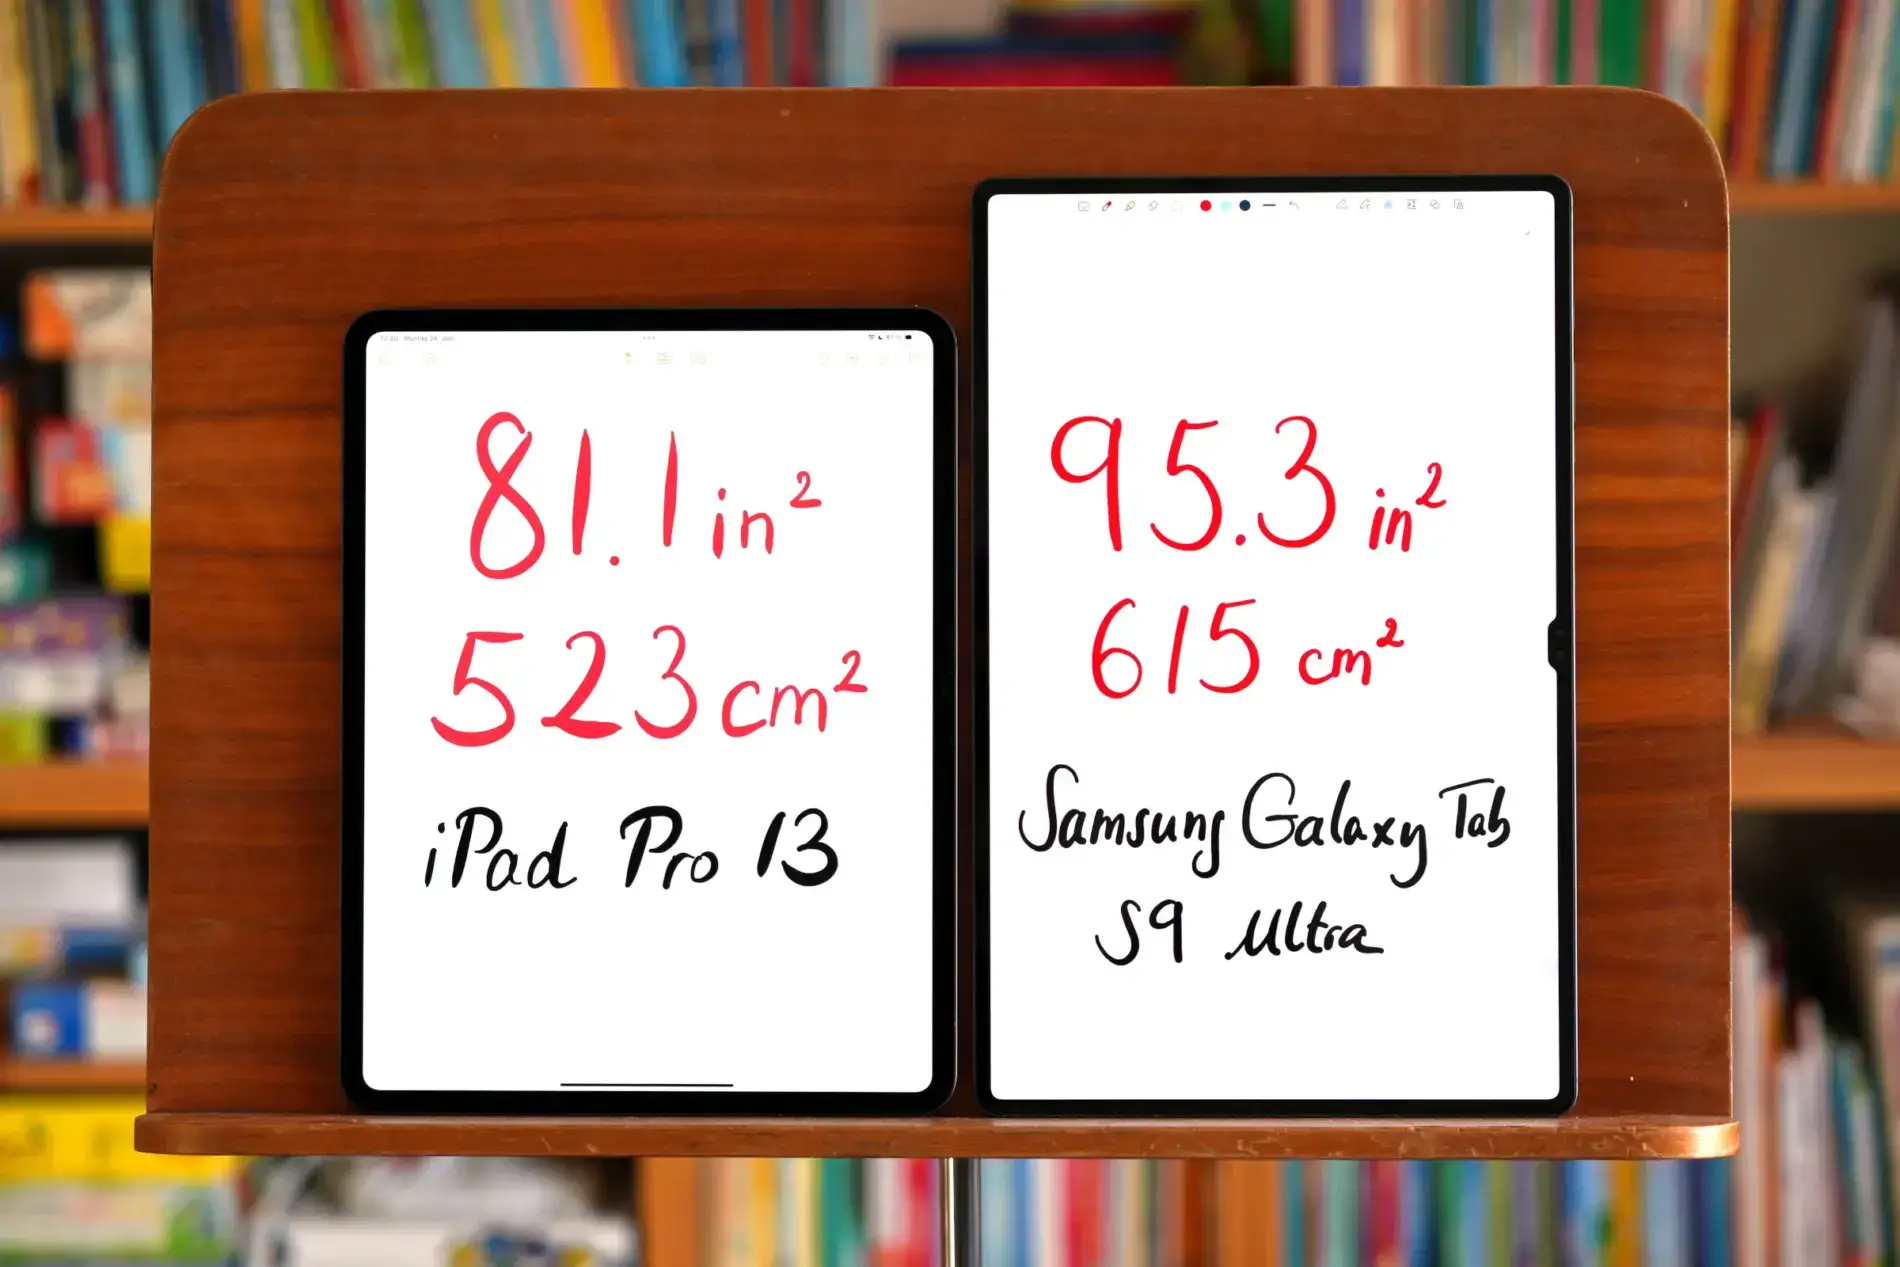 81.1 in²
523 cm²
iPad Pro 13
95.3 in²
615 cm²
Samsung Galaxy Tab
S9 Ultra